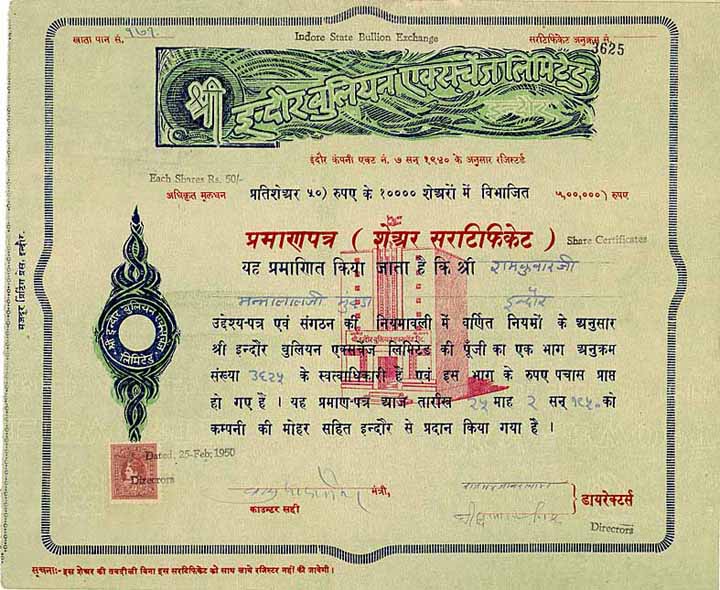 खाता पान सं. १७१
Indore State Bullion Exchange
सरटिफिकेट अनुक्रम सं.
3625
श्री इन्दौर बुलियन एक्सचेंज लिमिटेड
इन्दौर
इंदौर कंपनी एक्ट नं. ७ सन् १९४० के अनुसार रजिस्टर्ड
Each Shares Rs. 50/-
अधिकृत मूलधन प्रतिशेअर ५०) रुपए के १०००० शेअरों में विभाजित ५,००,०००) रुपए
प्रमाणपत्र ( शेअर सरटिफिकेट )
Share Certificates
यह प्रमाणित किया जाता है कि श्री रामकुवारजी
मन्नालालजी मुंदडा इन्दौर
उद्देश्य-पत्र एवं संगठन की नियमावली में वर्णित नियमों के अनुसार
श्री इन्दौर बुलियन एक्सचेंज लिमिटेड की पूँजी का एक भाग अनुक्रम
संख्या ३६२५ के स्वत्वाधिकारी हैं एवं इस भाग के रुपए पचास प्राप्त
हो गए हैं । यह प्रमाण-पत्र आज तारीख २५ माह २ सन् १९५० को
कम्पनी की मोहर सहित इन्दौर से प्रदान किया गया है ।
श्री इन्दौर बुलियन एक्सचेंज
लिमिटेड
मजदूर प्रिंटिंग प्रेस, इन्दौर.
Dated, 25-Feb; 1950
Direcrors
मंत्री,
काउन्टर सही
डायरेक्टर्स
Direcrors
सूचनाः- इस शेअर की तबदीली बिना इस सरटिफिकेट को साथ लाये रजिस्टर नहीं की जावेगी ।